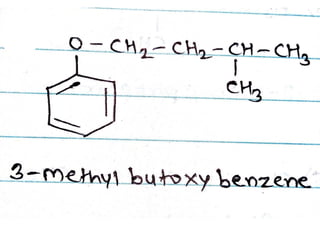 O-CH₂-CH₂-CH-CH₃
CH₃
3-methyl butoxy benzene